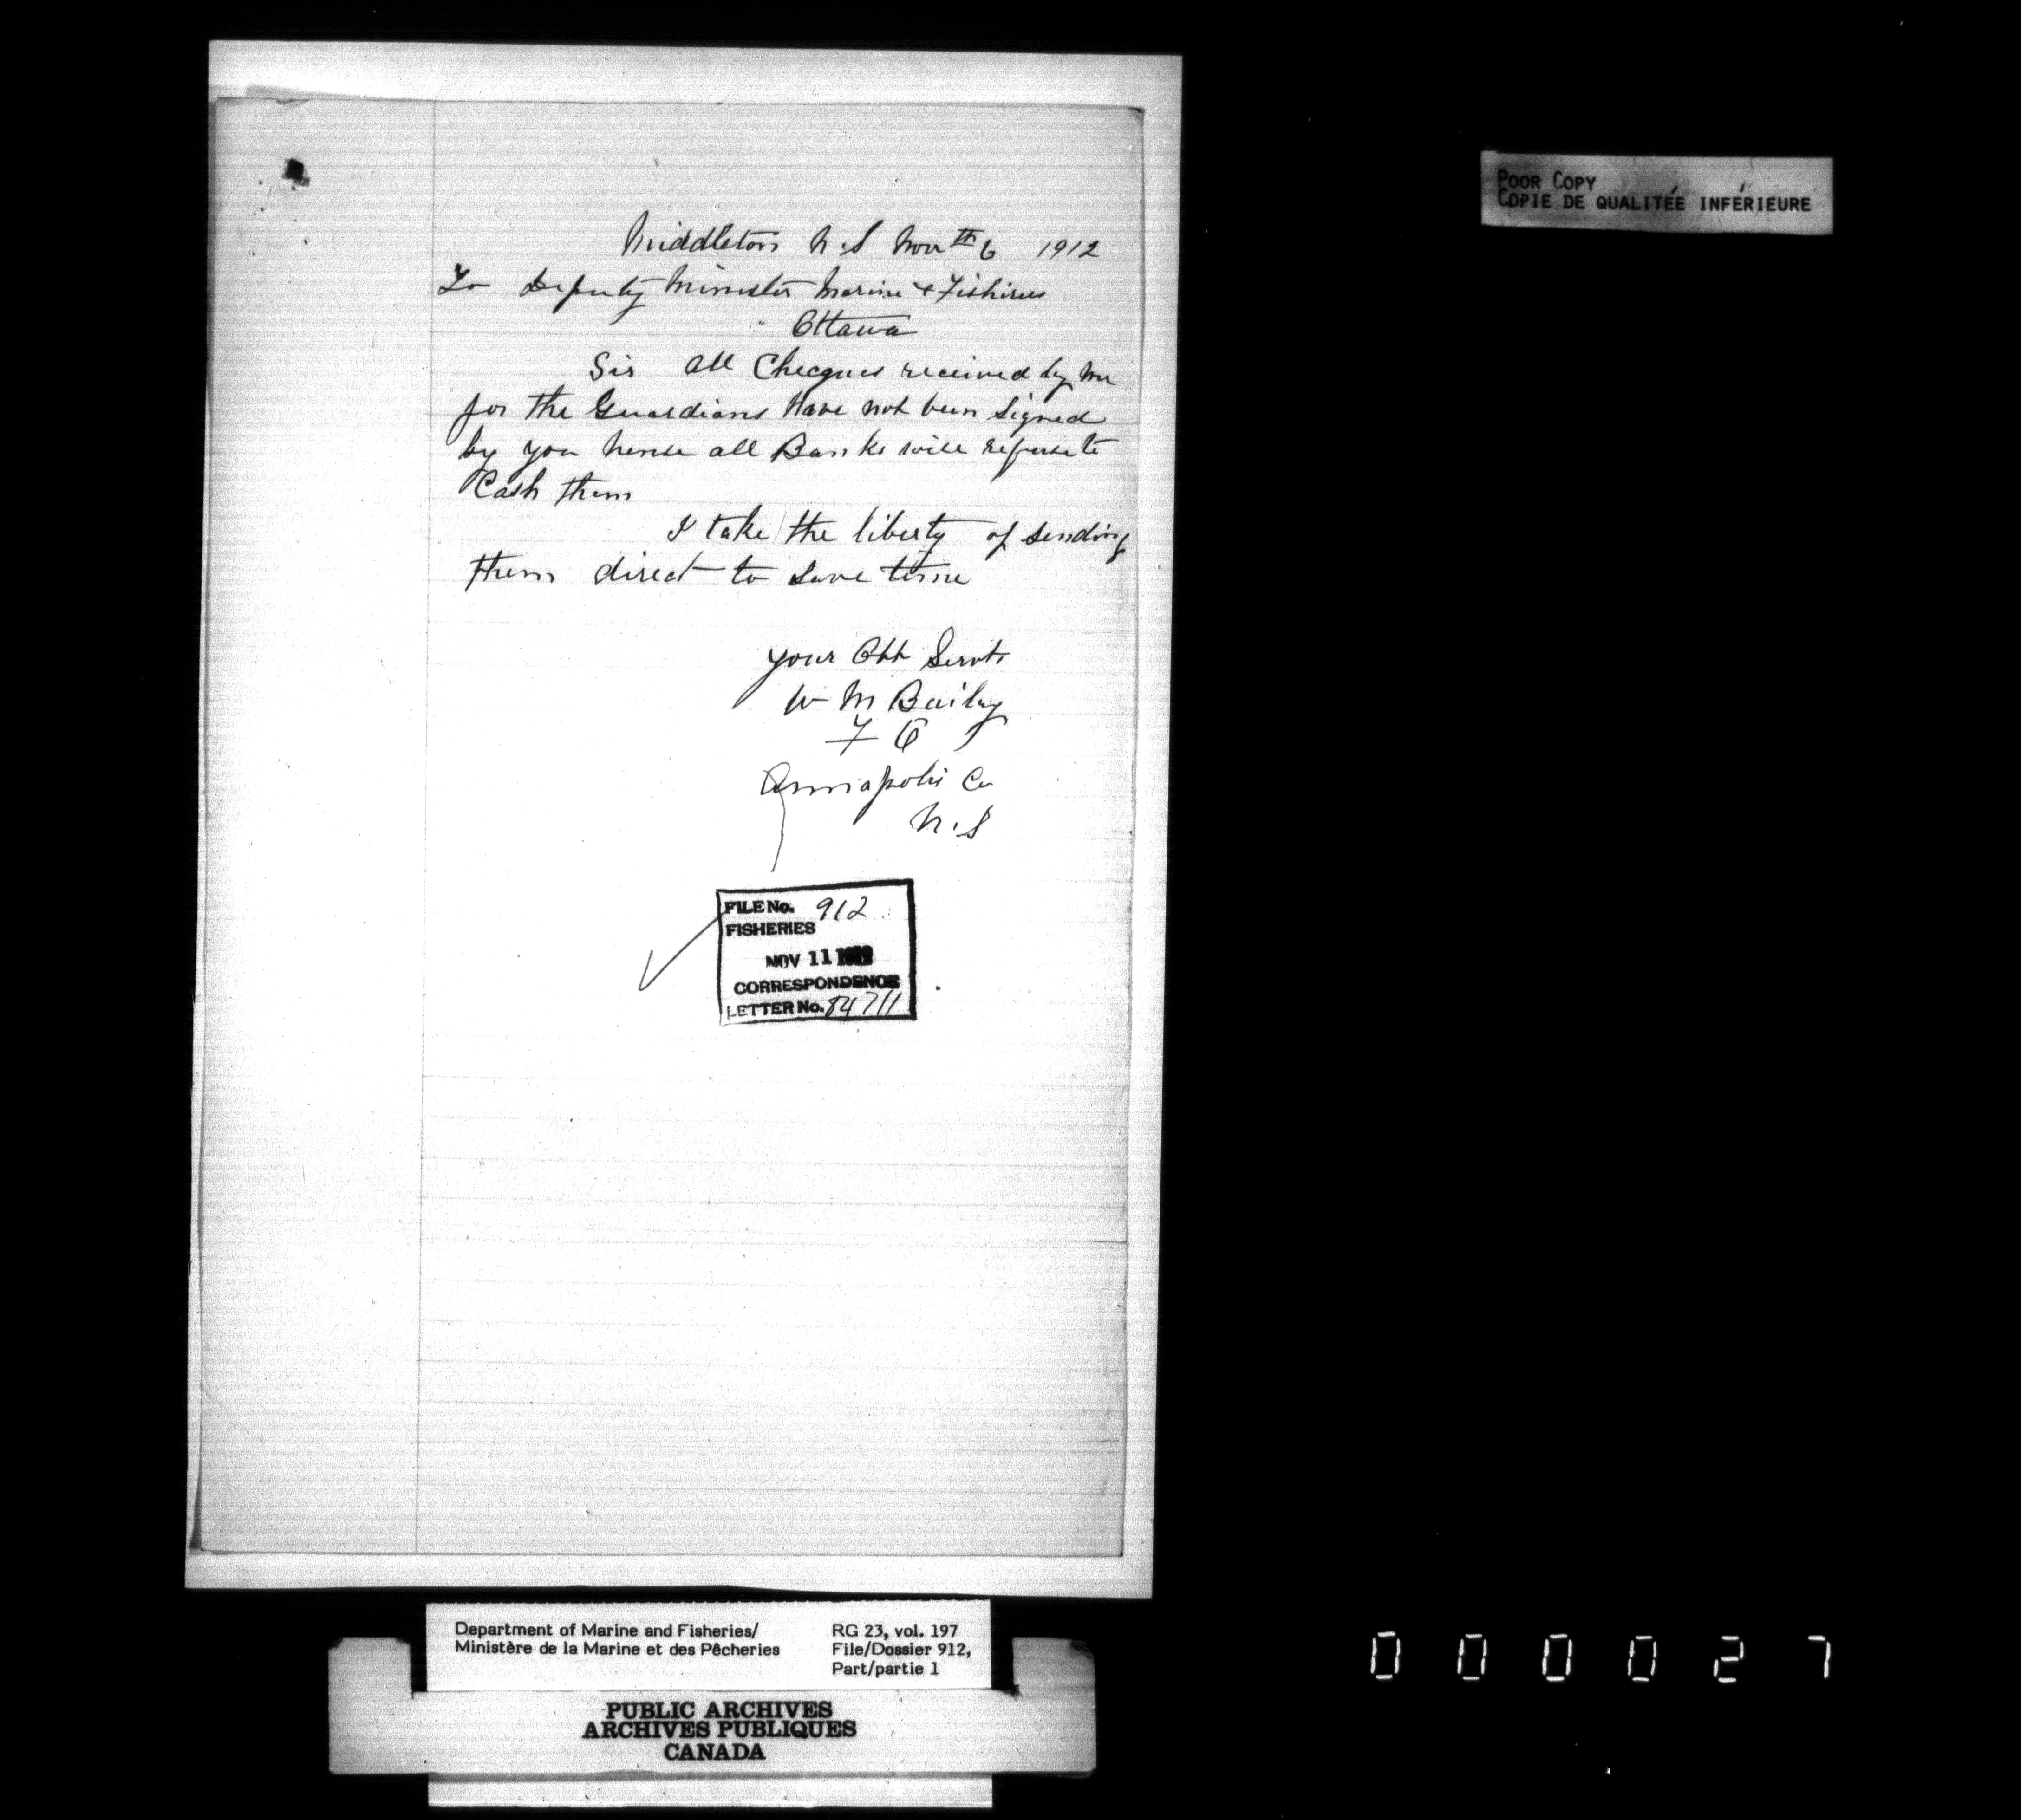 Middleton N.S Nov th 6 1912
To Deputy Minister Marine & Fishires
Ottawa
Sir all Checques received by me
for the Guardians have not been signed
by you hense all Banks will refuse to
Cash them
I take the liberty of sending
them direct to save time
your Obt Servt
W M Bailey
F O
Annapolis Co
N.S
FILE No. 912
FISHERIES
NOV 11 1912
CORRESPONDENCE
LETTER No. 84711
POOR COPY
COPIE DE QUALITÉE INFÉRIEURE
Department of Marine and Fisheries/
Ministère de la Marine et des Pêcheries
RG 23, vol. 197
File/Dossier 912,
Part/partie 1
PUBLIC ARCHIVES
ARCHIVES PUBLIQUES
CANADA
000027